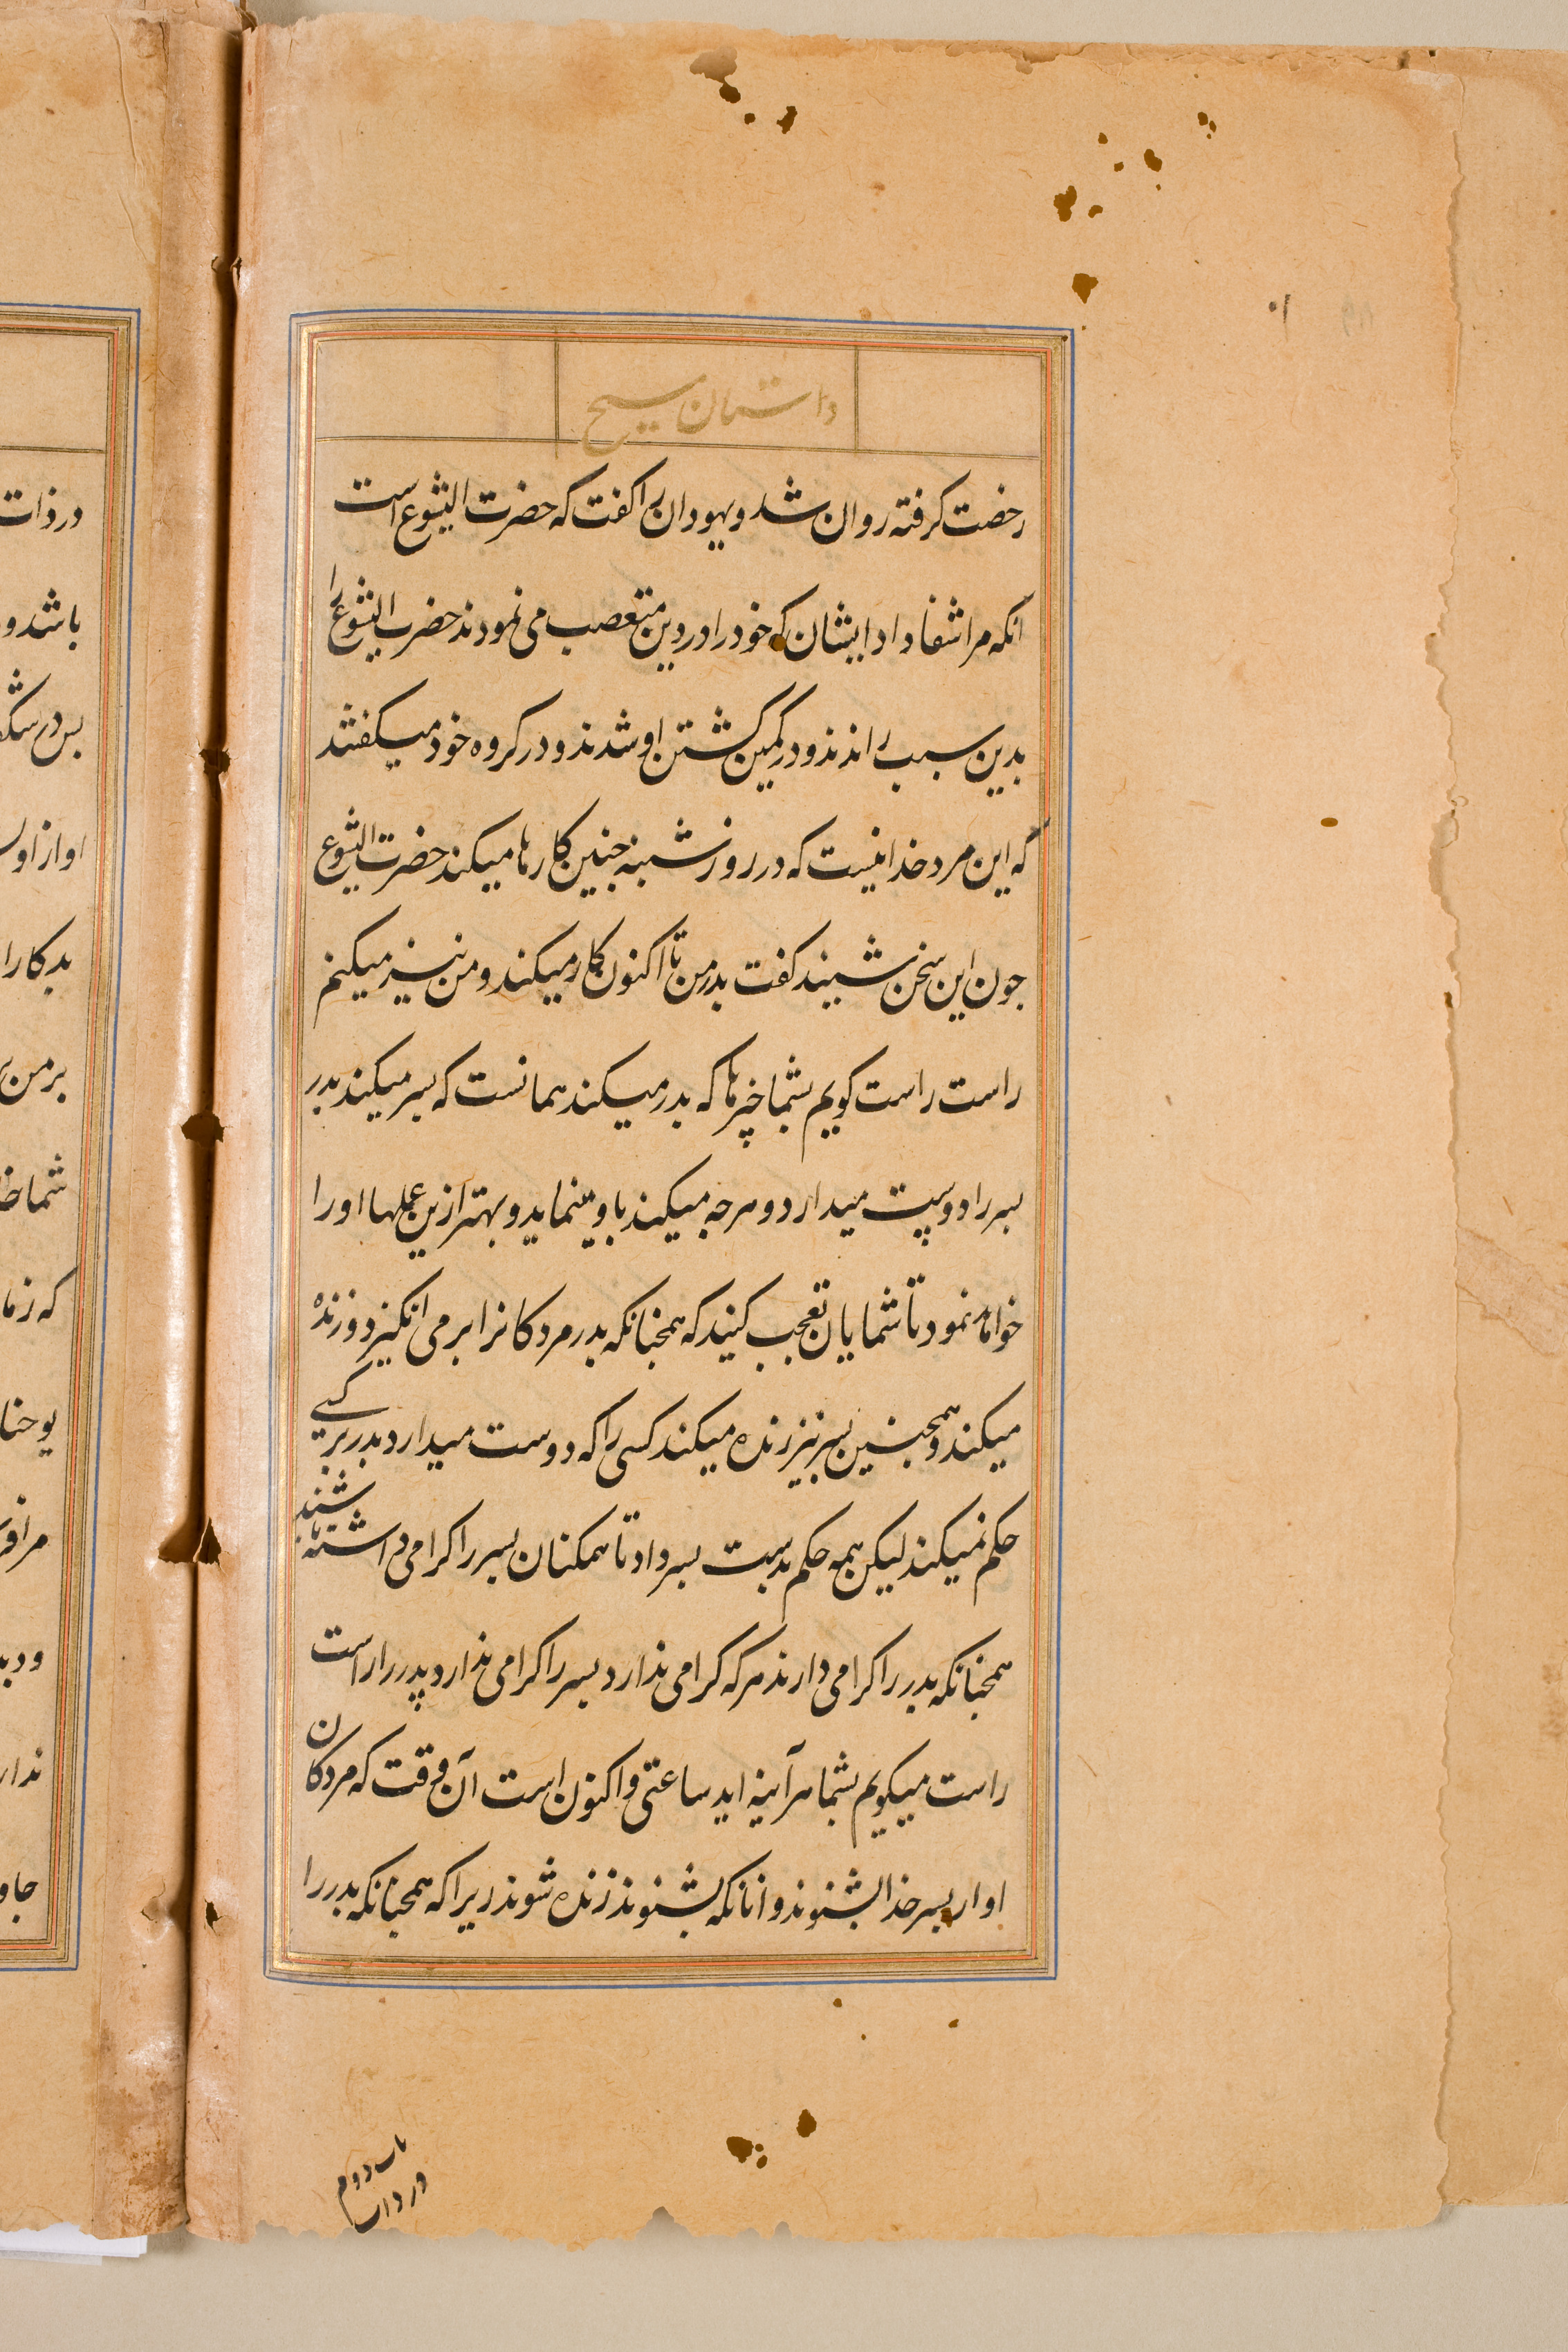 داستان مسیح
رخصت کرفته روان شد و یهودان را کفت که حضرت ایشوع است
انکه مرا شفا داد ایشان که خود را در دین متعصب می نمودند حضرت ایشوع را
بدین سبب راندند و در کمین کشتن او شدند و در کروه خود میکفتند
که این مرد خدا نیست که در روز شنبه جنین کارها میکند حضرت ایشوع
جون این سخن شنید کفت بدر من تا اکنون کار میکند و من نیز میکنم
راست راست کویم بشما چیزها که بدر میکند همانست که بسر میکند بدر
بسر را دوست میدارد و هرجه میکند باو مینماید و بهتر ازین عملها او را
خواهد نمود تا شمایان تعجب کنید که همجنانکه بدر مردکانرا بر می انکیزد و زنده
میکند و همجنین بسر نیز زنده میکند کسی را که دوست میدارد بدر بر کسی
حکم نمیکند لیکن همه حکم بدست بسر داد تا همکنان بسر را کرامی داشته باشند
همجنانکه بدر را کرامی دارند هرکه کرامی ندارد بسر را کرامی ندارد پدر را راست
راست میکویم بشما هرآینه اید ساعتی و اکنون است آن وقت که مردکان
اواز بسر خدا بشنوند و انانکه بشنوند زنده شوند زیرا که همجنانکه بدر را
باب دوم
در ذات
در ذات
باشد و
بس در
او از
بدکار را
بر من
شما
که زما
یوحنا
ندار